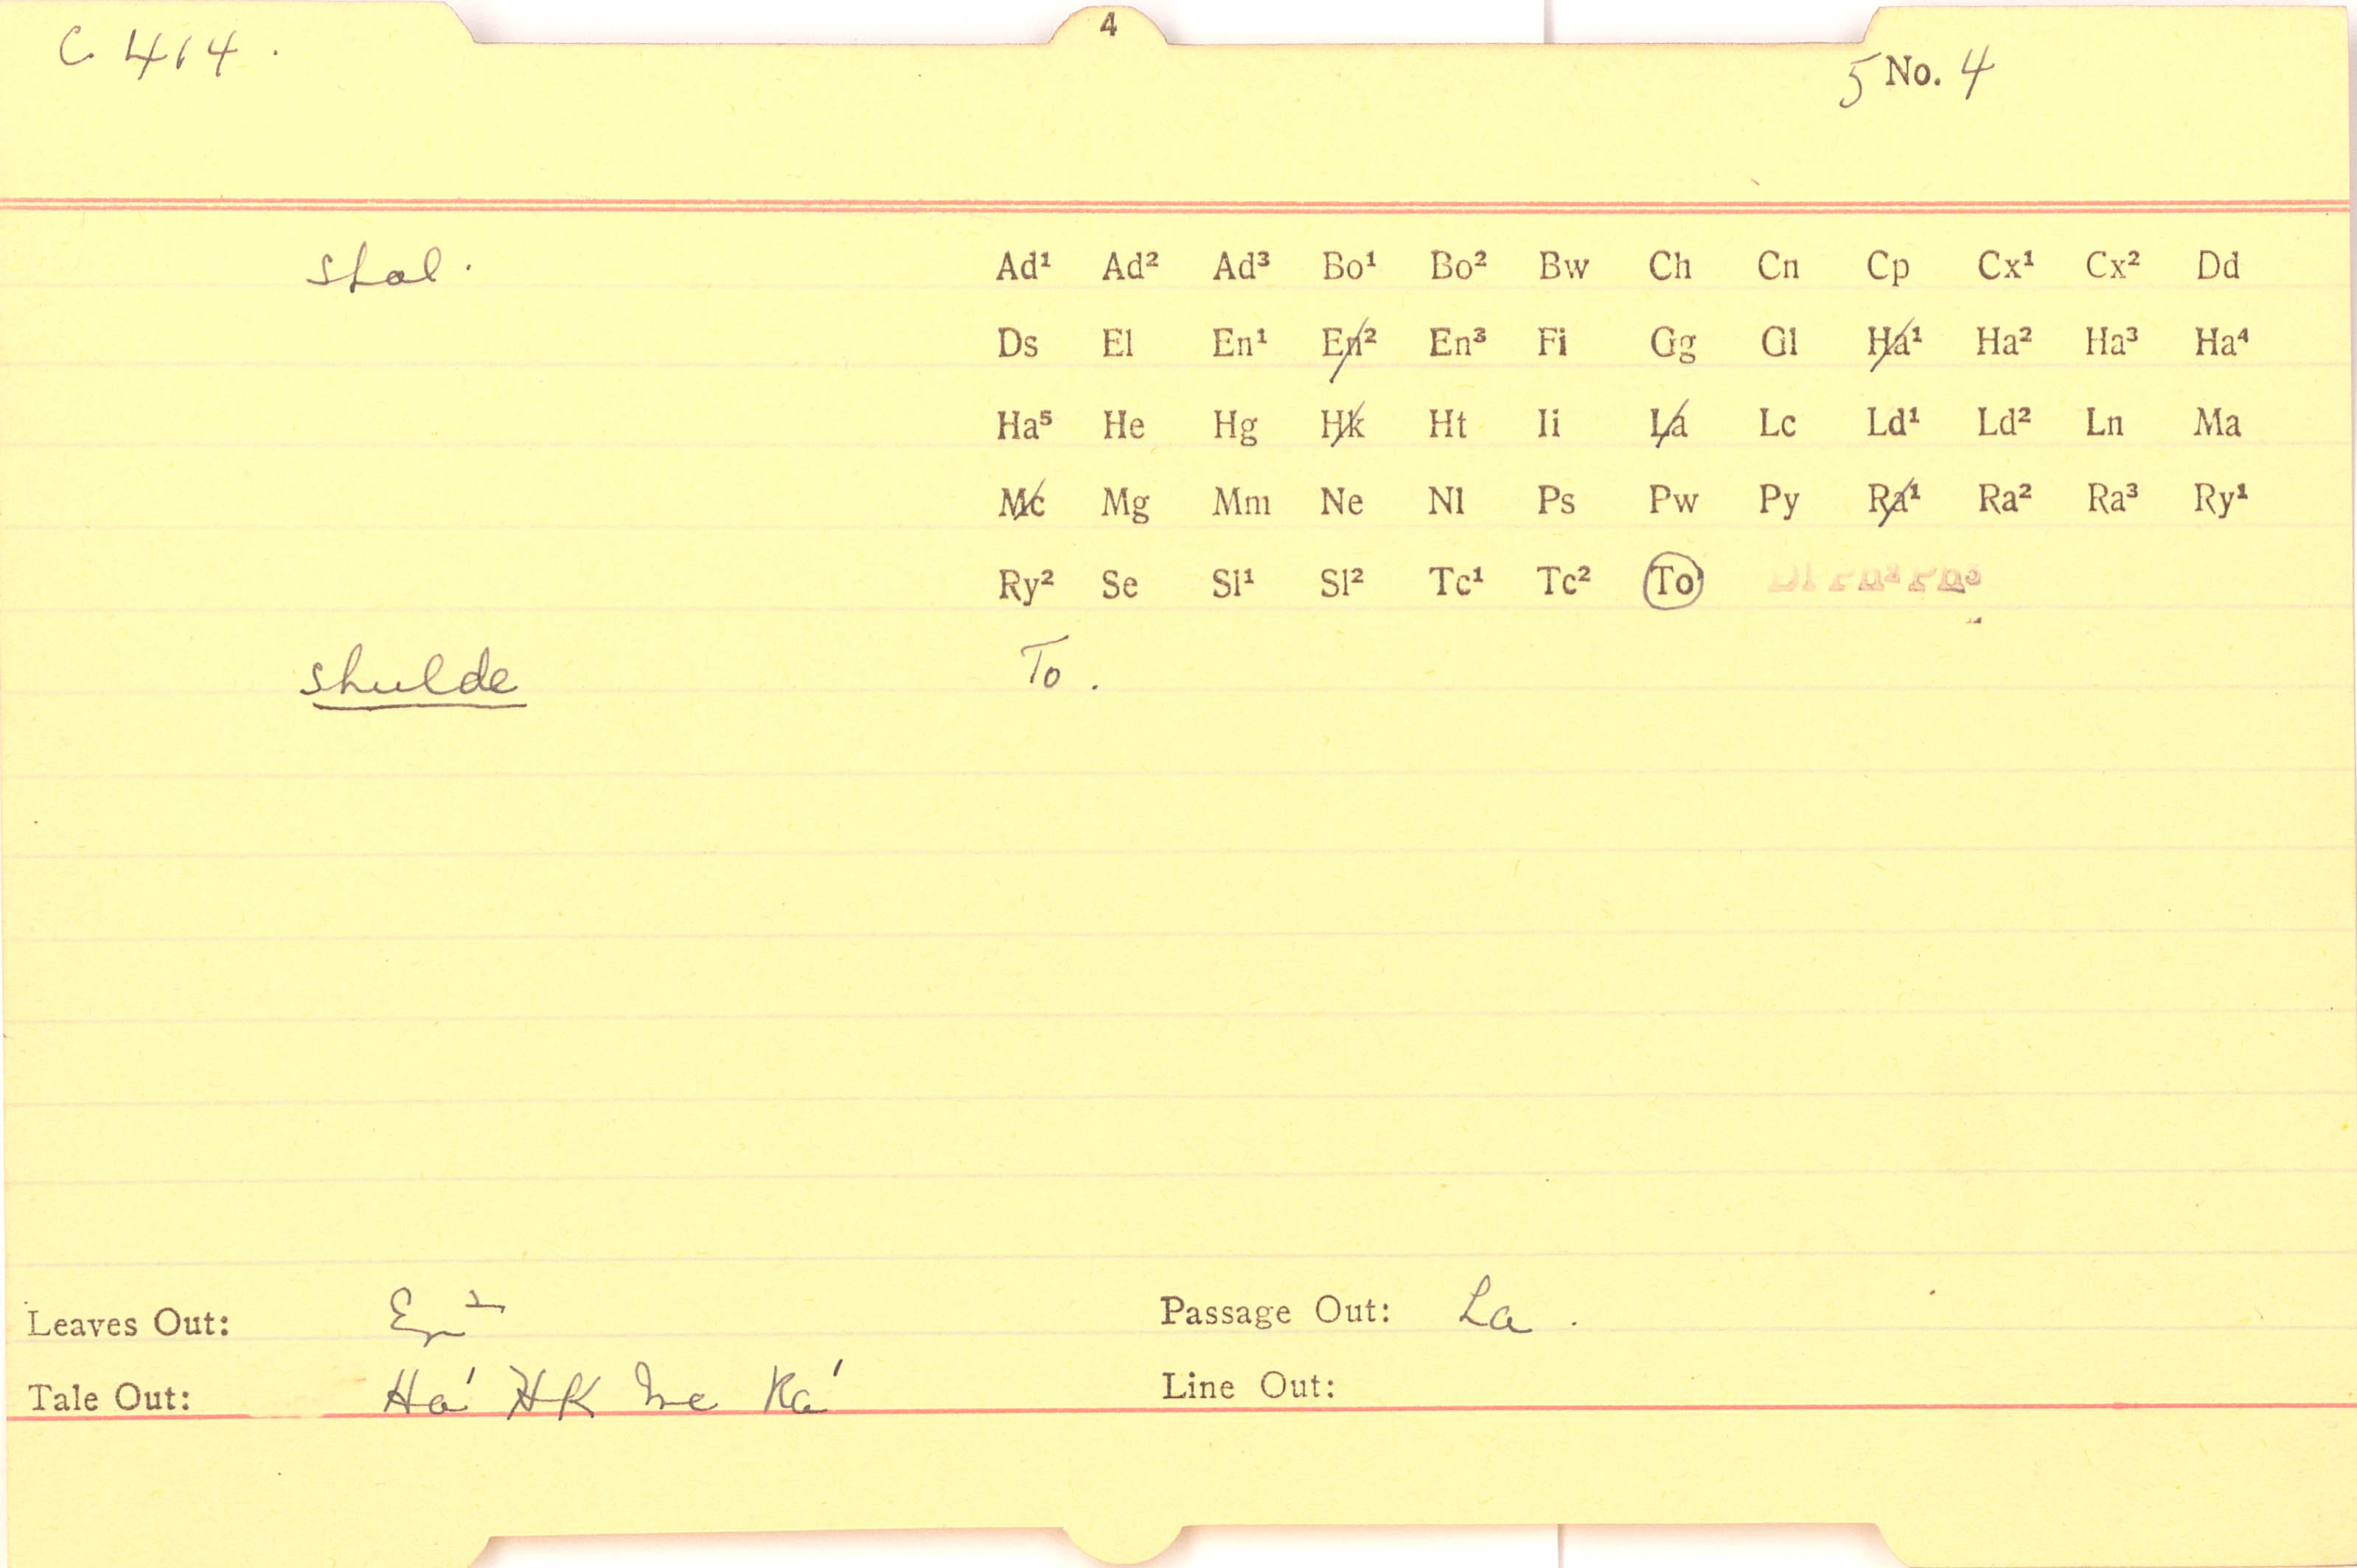 4
C 414 .
5 No. 4
shal .
Ad¹ Ad² Ad³ Bo¹ Bo² Bw Ch Cn Cp Cx¹ Cx² Dd
Ds El En¹ En² En³ Fi Gg Gl Ha¹ Ha² Ha³ Ha⁴
Ha⁵ He Hg Hk Ht Ii La Lc Ld¹ Ld² Ln Ma
Mc Mg Mm Ne Nl Ps Pw Py Ra¹ Ra² Ra³ Ry¹
Ry² Se Sl¹ Sl² Tc¹ Tc² To
shulde To .
Leaves Out: En² Passage Out: La .
Tale Out: Ha¹ HK Mc Ra¹ Line Out: